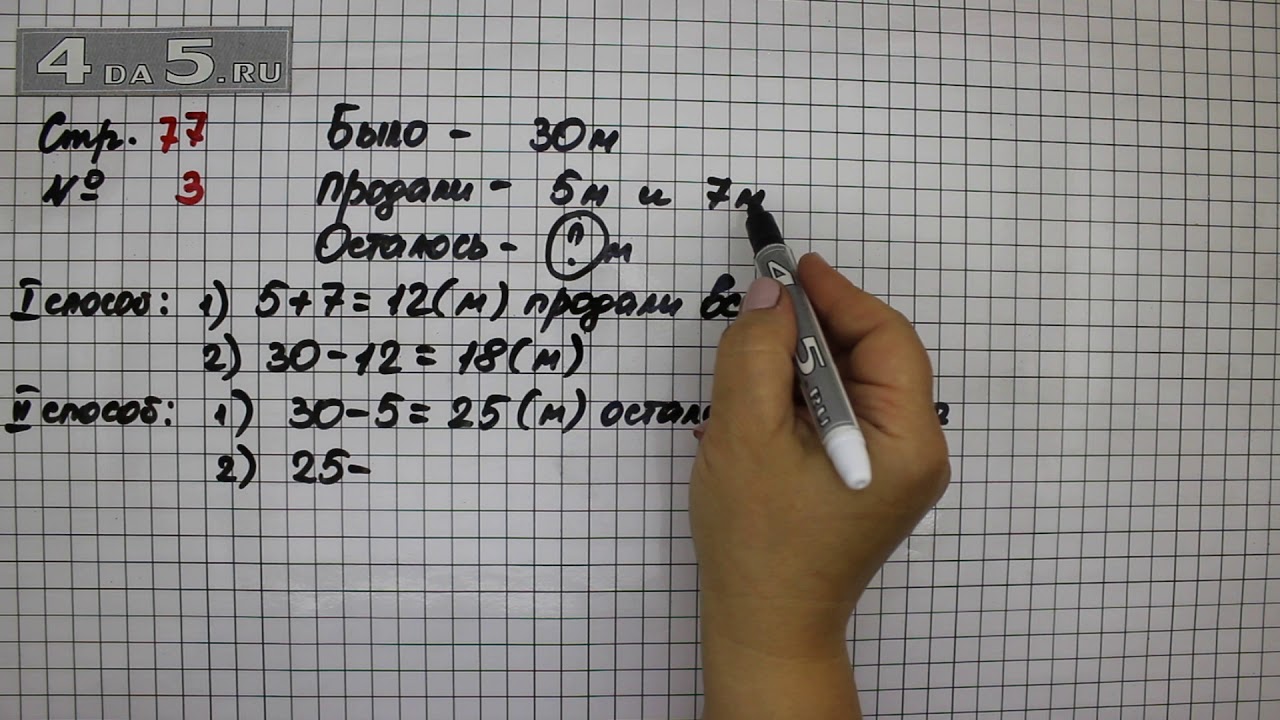 4DA5.RU
Стр. 77
№ 3
Было - 30м
Продали - 5м и 7м
Осталось - ? м
I способ: 1) 5+7=12(м) продали
2) 30-12=18(м)
II способ: 1) 30-5=25(м)
2) 25-
4
5.RU